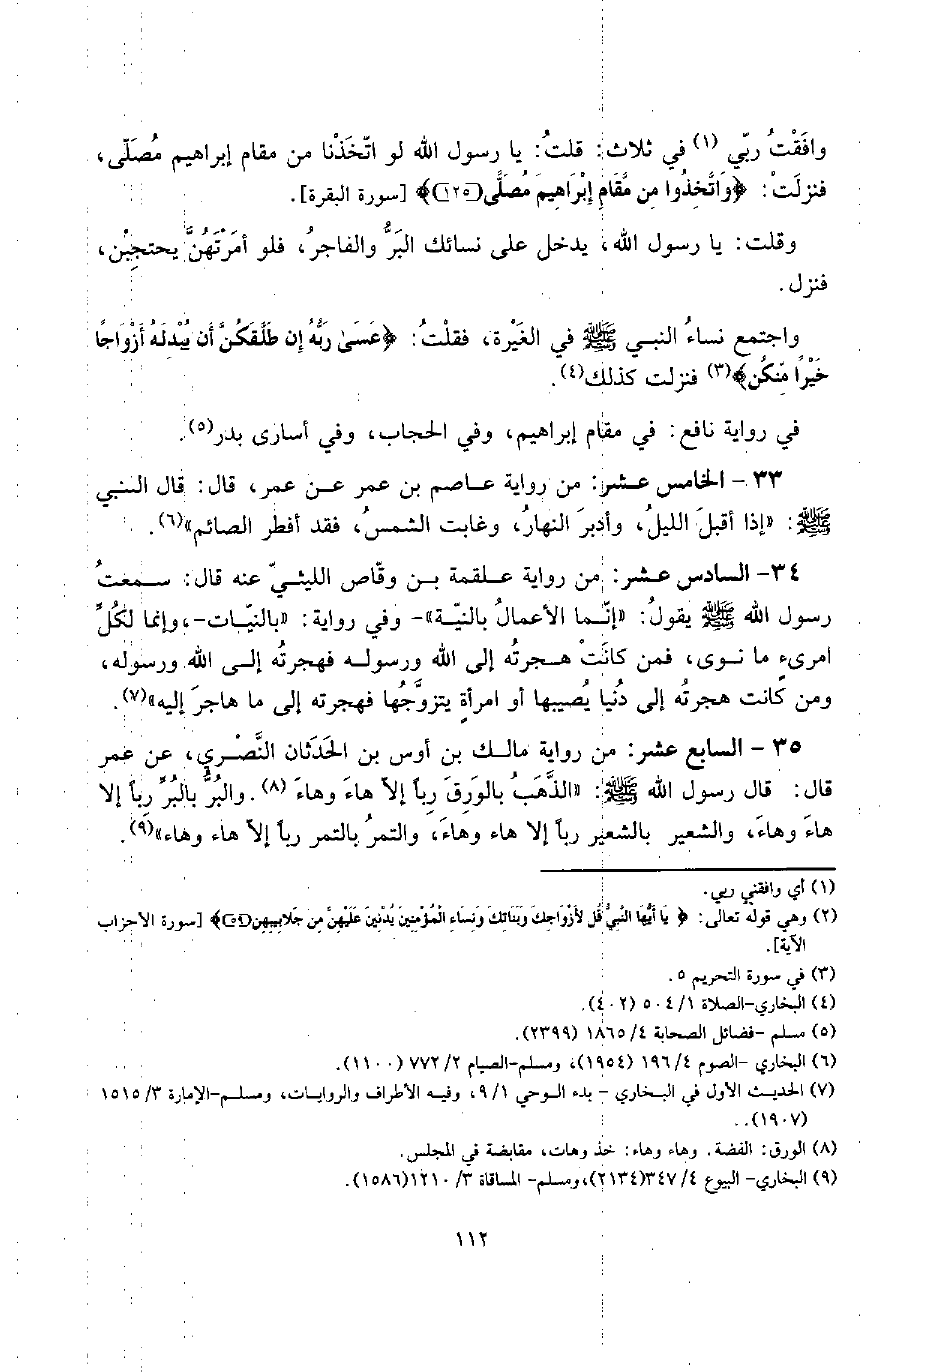 وافَقْتُ ربّي (١) في ثلاث: قلتُ: يا رسول الله لو اتّخَذْنا من مقام إبراهيم مُصَلّى،
فنزلَتْ: ﴿وَاتَّخِذُوا مِن مَّقَامِ إِبْرَاهِيمَ مُصَلًّى(١٢٥)﴾ [سورة البقرة].
وقلت: يا رسول الله، يدخل على نسائك البَرُّ والفاجرُ، فلو أمَرْتَهُنَّ يحتجِبْن،
فنزل.
واجتمع نساءُ النبي ﷺ في الغَيْرة، فقلتُ: ﴿عَسَىٰ رَبُّهُ إِن طَلَّقَكُنَّ أَن يُبْدِلَهُ أَزْوَاجًا
خَيْرًا مِّنكُن﴾(٣) فنزلت كذلك(٤).
في رواية نافع: في مقام إبراهيم، وفي الحجاب، وفي أسارى بدر(٥).
٣٣ - الخامس عشر: من رواية عاصم بن عمر عن عمر، قال: قال النبي
ﷺ: «إذا أقبلَ الليلُ، وأدبرَ النهارُ، وغابت الشمسُ، فقد أفطر الصائم»(٦).
٣٤- السادس عشر: من رواية علقمة بن وقّاص الليثيّ عنه قال: سمعتُ
رسول الله ﷺ يقولُ: «إنّما الأعمالُ بالنيّة»- وفي رواية: «بالنيّات-،وإنما لكُلِّ
امرىءٍ ما نوى، فمن كانَتْ هجرتُه إلى الله ورسوله فهجرتُه إلى الله ورسوله،
ومن كانت هجرتُه إلى دُنْيا يُصيبها أو امرأةٍ يتزوَّجُها فهجرته إلى ما هاجرَ إليه»(٧).
٣٥ - السابع عشر: من رواية مالك بن أوس بن الحَدَثان النَّصْري، عن عمر
قال: قال رسول الله ﷺ: «الذَّهَبُ بالوَرِق رِباً إلاّ هاءَ وهاءَ (٨).والبُرُّ بالبُرِّ رِباً إلا
هاءَ وهاءَ، والشعير بالشعير رِباً إلا هاء وهاءَ، والتمرُ بالتمر رِباً إلاّ هاء وهاء»(٩).
(١) أي وافقني ربي.
(٢) وهي قوله تعالى: ﴿ يَا أَيُّهَا النَّبِيُّ قُل لِأَزْوَاجِكَ وَبَنَاتِكَ وَنِسَاءِ الْمُؤْمِنِينَ يُدْنِينَ عَلَيْهِنَّ مِن جَلَابِيبِهِنَّ(٥٩)﴾ [سورة الأحزاب
الآية].
(٣) في سورة التحريم ٥.
(٤) البخاري-الصلاة ١/ ٥٠٤ (٤٠٢).
(٥) مسلم -فضائل الصحابة ٤/ ١٨٦٥ (٢٣٩٩).
(٦) البخاري -الصوم ٤/ ١٩٦ (١٩٥٤)، ومسلم-الصيام ٢/ ٧٧٢ (١١٠٠).
(٧) الحديث الأول في البخاري - بدء الوحي ١/ ٩، وفيه الأطراف والروايات، ومسلم-الإمارة ٣/ ١٥١٥
(١٩٠٧)..
(٨) الورق: الفضة. وهاء وهاء: خذ وهات، مقابضة في المجلس.
(٩) البخاري- البيوع ٤/ ٣٤٧(٢١٣٤)،ومسلم- المساقاة ٣/ ١٢١٠(١٥٨٦).
١١٢